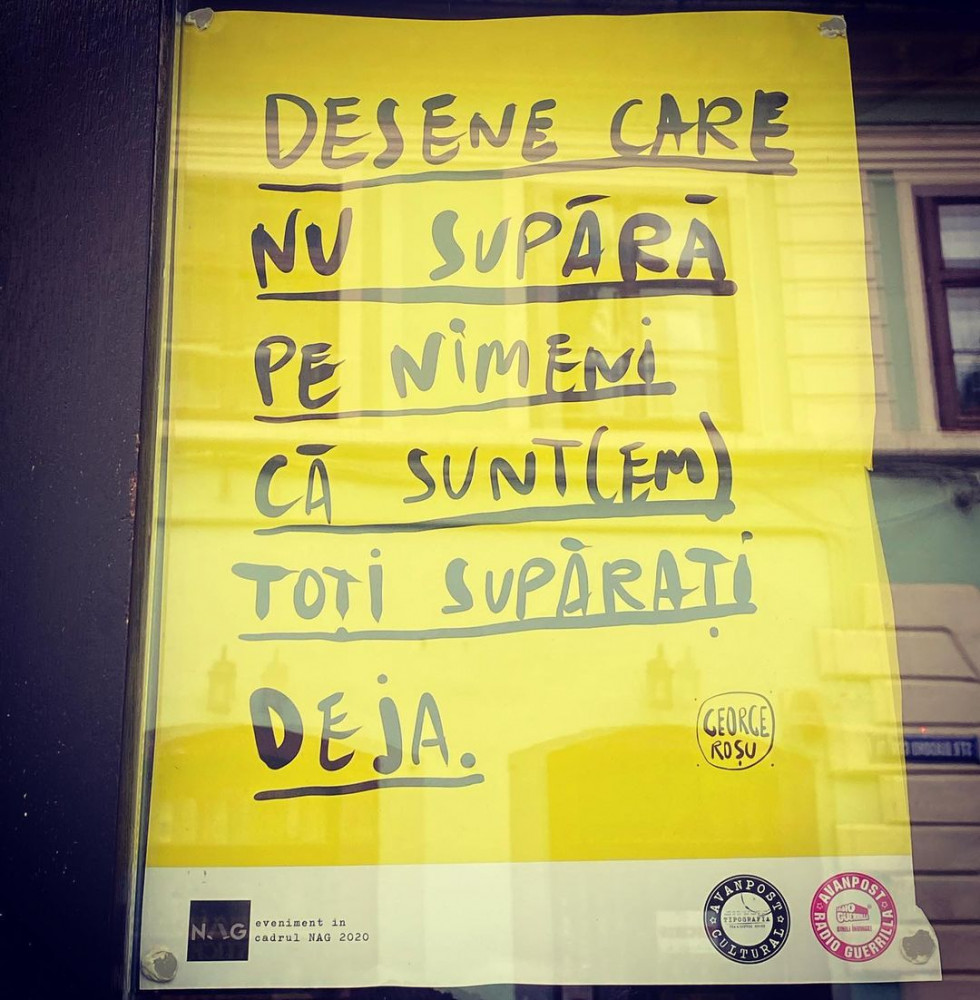 DESENE CARE
NU SUPĂRĂ
PE NIMENI
CĂ SUNT(EM)
TOȚI SUPĂRAȚI
DEJA.
GEORGE
ROȘU
NAG
eveniment in
cadrul NAG 2020
AVANPOST
TIPOGRAFIA
CULTURAL
AVANPOST
GUERRILLA
RADIO GUERRILLA